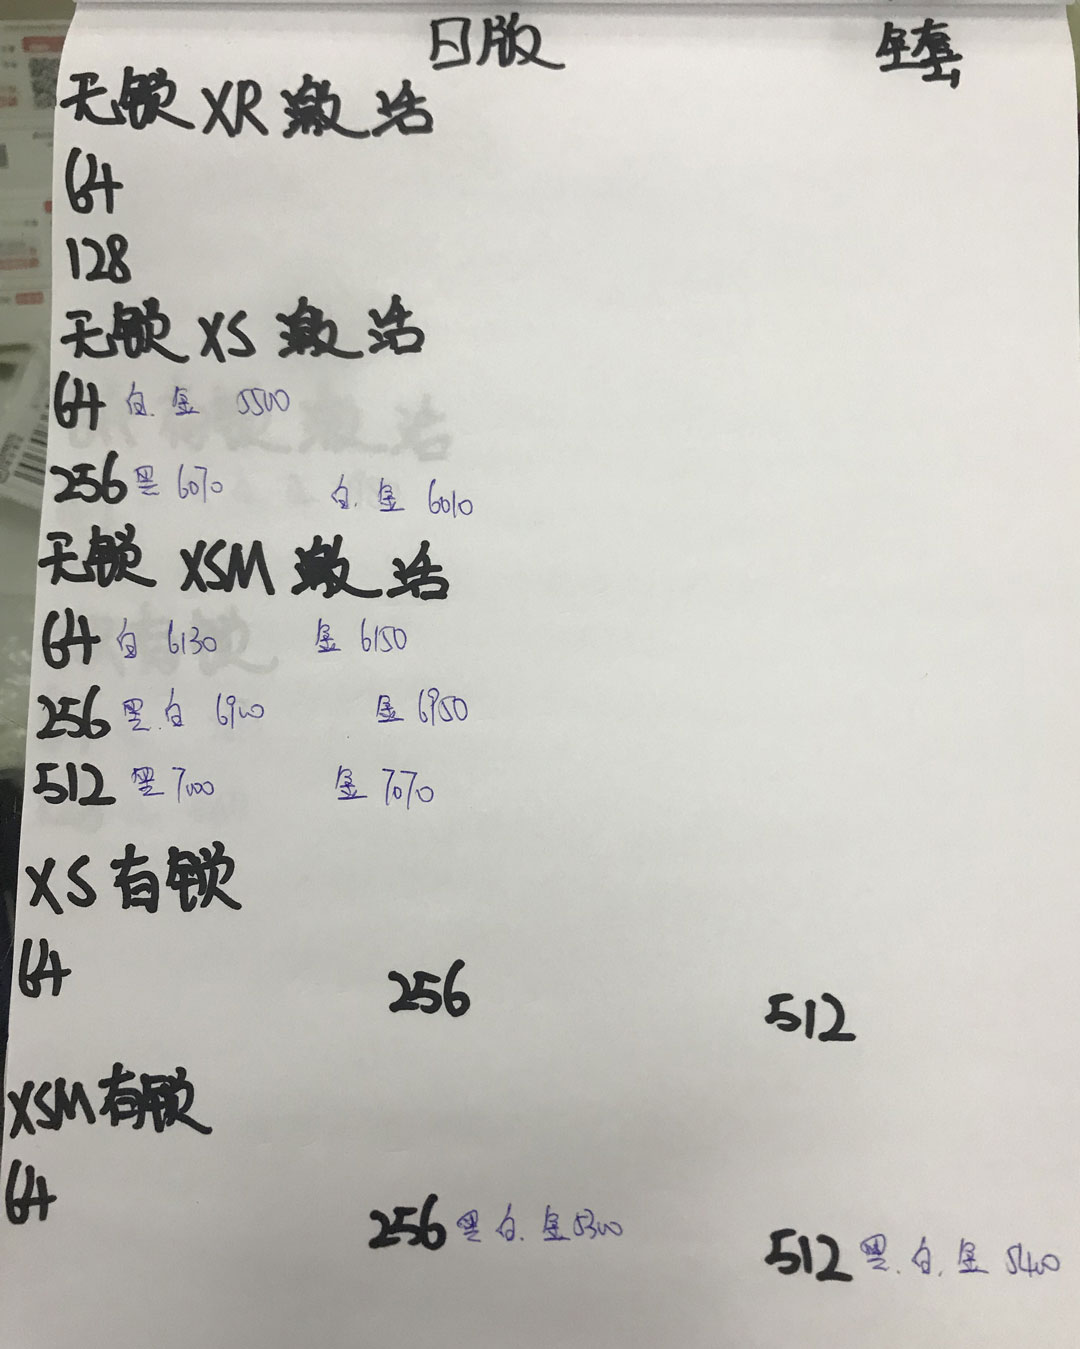 日版 全套
无锁 XR 激活
64
128
无锁 XS 激活
64 白.金 5500
256 黑 6070 白.金 6010
无锁 XSM 激活
64 白 6130 金 6150
256 黑.白 6900 金 6950
512 黑 7000 金 7070
XS 有锁
64 256 512
XSM 有锁
64 256 黑 白.金 5300 512 黑.白.金 5400